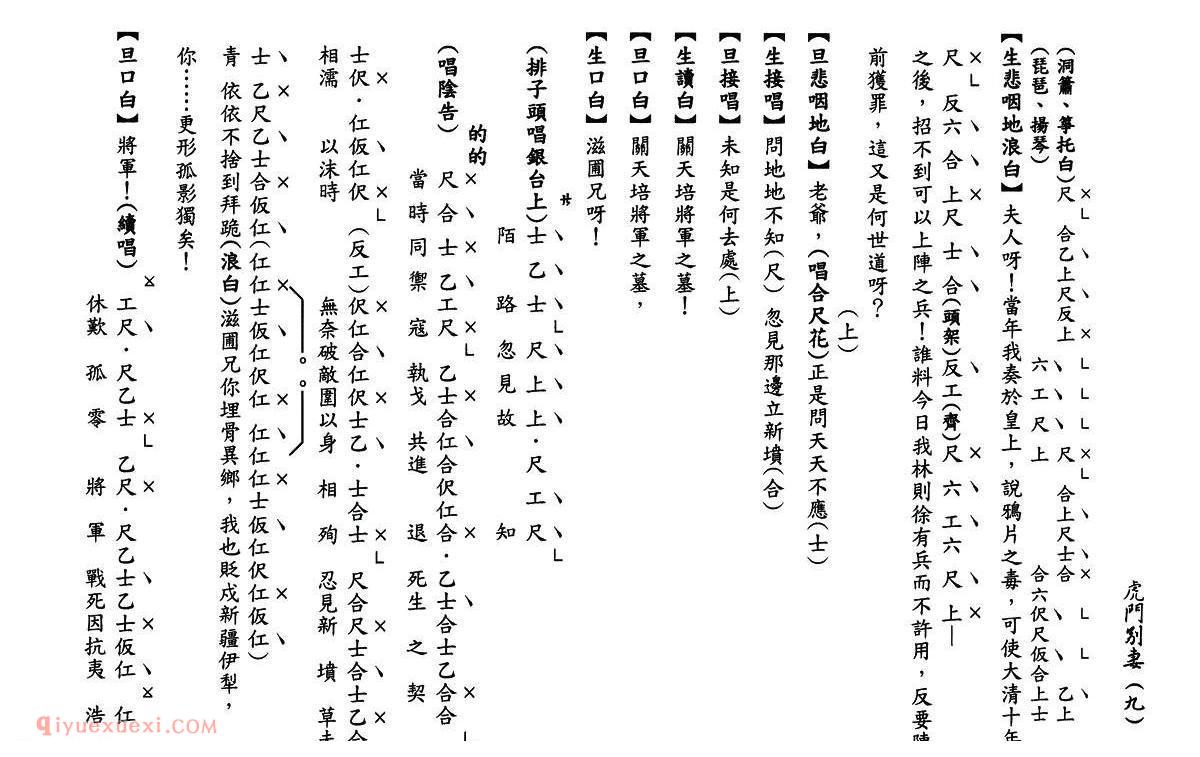 虎門別妻（九）
（洞簫、箏托白）尺 合乙上尺反上 六工尺上 尺 合上尺士合 合六伬尺仮合上士 乙上
（琵琶、揚琴）
【生悲咽地浪白】夫人呀！當年我奏於皇上，說鴉片之毒，可使大清十年
尺 反六合上尺士合（頭架）反工（齊）尺六工六尺上—
之後，招不到可以上陣之兵！誰料今日我林則徐有兵而不許用，反要陣
前獲罪，這又是何世道呀？
（上）
【旦悲咽地白】老爺，（唱合尺花）正是問天天不應（士）
【生接唱】問地地不知（尺） 忽見那邊立新墳（合）
【旦接唱】未知是何去處（上）
【生讀白】關天培將軍之墓！
【旦口白】關天培將軍之墓，
【生口白】滋圃兄呀！
（排子頭唱銀台上）士乙士尺上上．尺工尺
陌路忽見故知
的的
（唱陰告）尺合士乙工尺 乙士合仜合伬仜合．乙士合士乙合合
當時同禦寇執戈共進退死生之契
士伬．仜仮仜伬（反工）伬仜合仜伬士乙．士合士 尺合尺士合士乙合
相濡以沫時無奈破敵圍以身相殉忍見新墳草
士乙尺乙士合仮仜（仜仜士仮仜伬仜 仜仜仜士仮仜伬仜仮仜）
青依依不捨到拜跪（浪白）滋圃兄你埋骨異鄉，我也貶戍新疆伊犁，
你……更形孤影獨矣！
【旦口白】將軍！（續唱）工尺．尺乙士乙尺．尺乙士乙士仮仜仜
休歎孤零將軍戰死因抗夷浩
qiyuexuexi.com